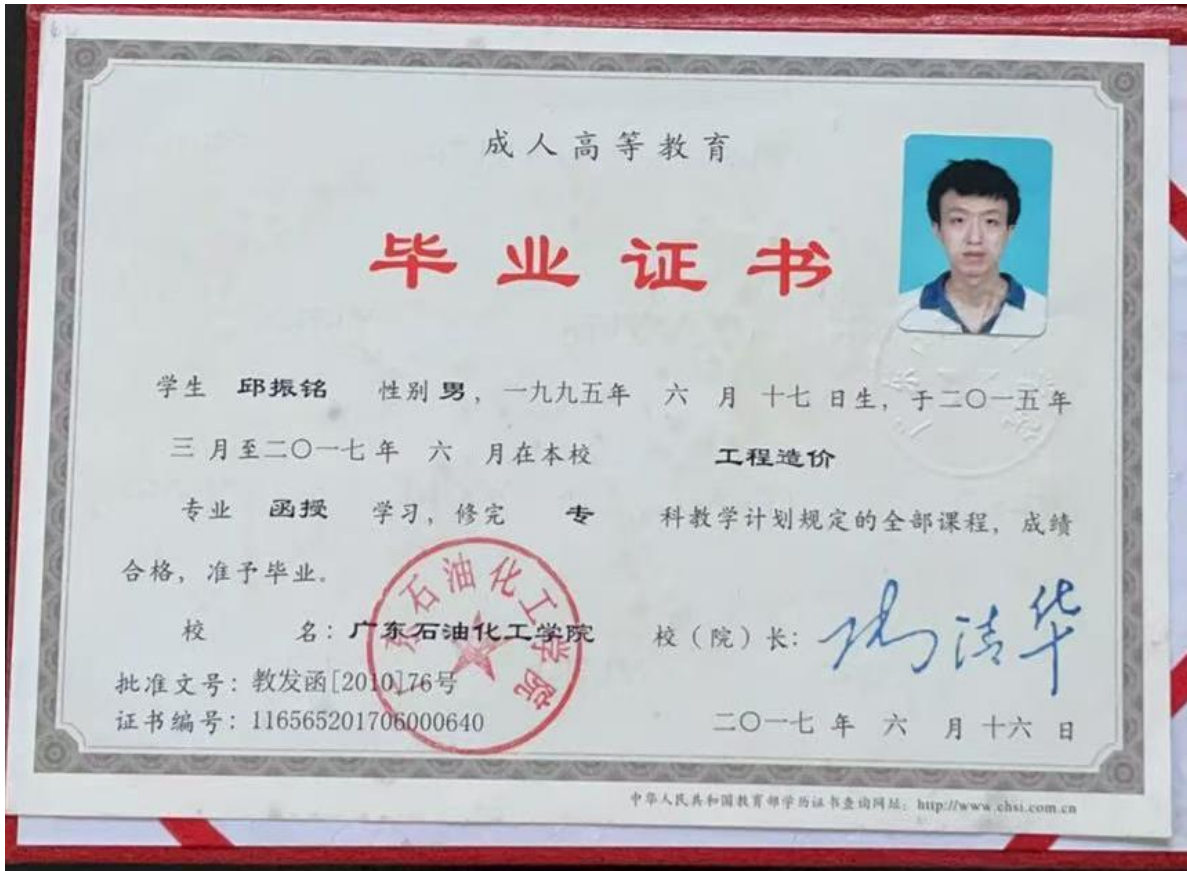 成人高等教育
毕业证书
学生 邱振铭 性别 男，一九九五年 六 月 十七 日生，于二〇一五年
三 月至二〇一七年 六 月在本校 工程造价
专业 函授 学习，修完 专 科教学计划规定的全部课程，成绩
合格，准予毕业。
校 名：广东石油化工学院 校（院）长：
批准文号：教发函[2010]76号
证书编号：116565201706000640 二〇一七 年 六 月 十六 日
广东石油化工学院
中华人民共和国教育部学历证书查询网站：http://www.chsi.com.cn